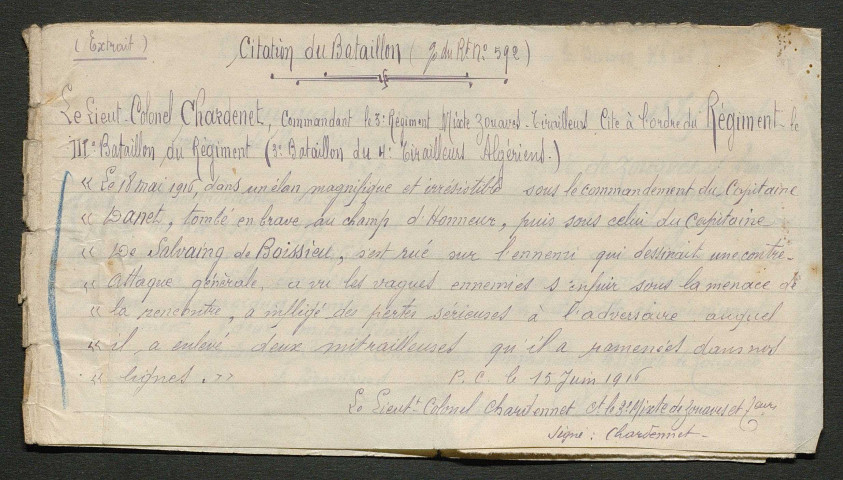 (Extrait)
Citation du Bataillon (O. du Rt. n° 592)
Le Lieut-Colonel Chardenet, Commandant le 3e Régiment Mixte Zouaves-Tirailleurs Cite à l'ordre du Régiment le
IIIe Bataillon du Régiment (3e Bataillon du 4e Tirailleurs Algériens.)
« Le 18 mai 1916, dans un élan magnifique et irrésistible sous le commandement du Capitaine
« Danet, tombé en brave au champ d'Honneur, puis sous celui du Capitaine
« De Salvaing de Boissieu, s'est rué sur l'ennemi qui dessinait une contre-
« attaque générale, a vu les vagues ennemies s'enfuir sous la menace de
« la rencontre, a infligé des pertes sérieuses à l'adversaire auquel
« il a enlevé deux mitrailleuses qu'il a ramenées dans nos
« lignes. »
P.C. le 15 Juin 1916
Le Lieutt Colonel Chardennet Ct le 3e Mixte de Zouaves et
Signé : Chardennet -